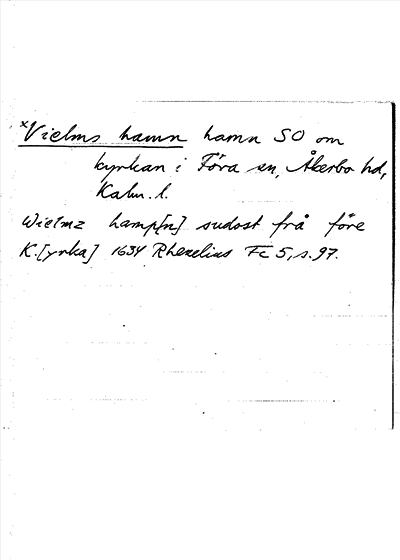 *Vielms hamn hamn SO om
kyrkan i Föra sn, Åkerbo hd,
Kalm. l.
Wielmz hamp[n] sudost frå före
K.[yrka] 1634 Rhezelius Fc 5, s. 97.